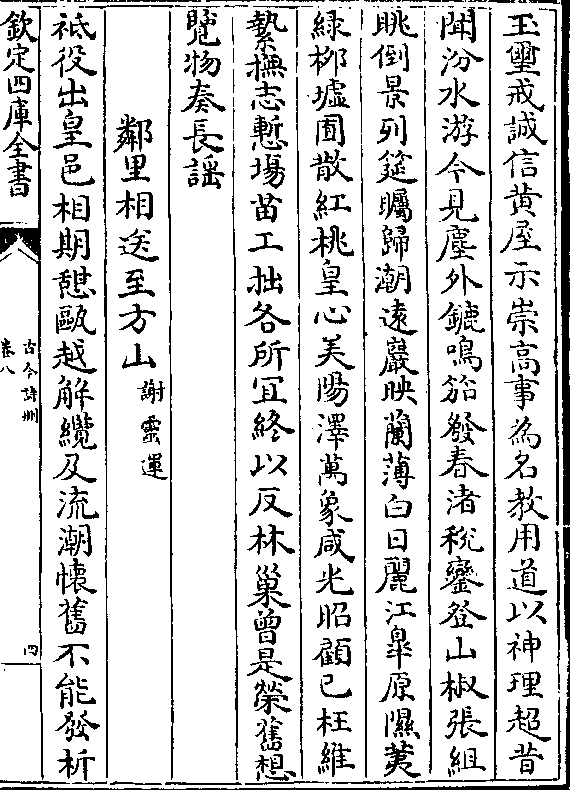 玉璽戒誠信黄屋示崇高事為名教用道以神理超昔
聞汾水游今見塵外鑣鳴笳發春渚稅鑾登山椒張組
眺倒景列筵矚歸潮遠巖映蘭薄白日麗江臯原隰荑
緑柳墟囿散紅桃皇心美陽澤萬象咸光昭顧已枉維
縶撫志慙塲苗工拙各所冝終以反林巢曾是縈舊想
覽物奏長謡
鄰里相送至方山謝靈運
祗役出皇邑相期憇甌越解纜及流潮懐舊不能發析
欽定四庫全書
古今詩刪
卷八
四